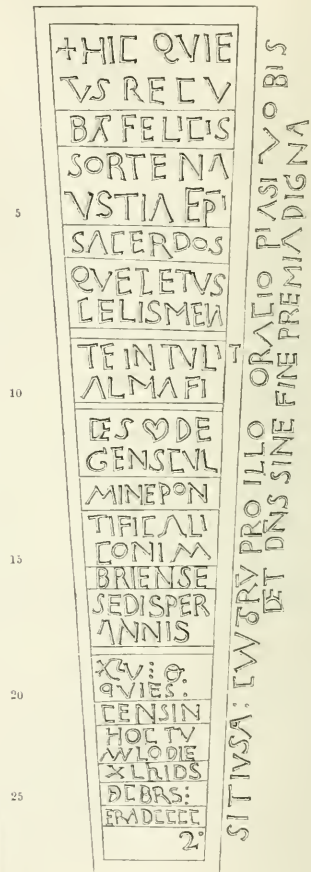 +HIC QVIE
VS RECV
BĀ FELICIS
SORTE NA
VSTIA Ep̄i
SACERDOS
QVE LETVS
CELIS MEN
TE INTVLIT
ALMA FI
DES ♡ DE
GENS CVL
MINE PON
TIFICALI
CONIM
BRIENSE
SEDIS PER
ANNIS
XV:
QVIES:
CENS IN
HOC TV
MVLO DIE
DCBRS:
ERA DCCCC
2°
5
10
15
20
25
SIT IVSA: PRO ILLO ORACIO PIA SI VOBIS
DET DN̄S SINE FINE PREMIA DIGNA